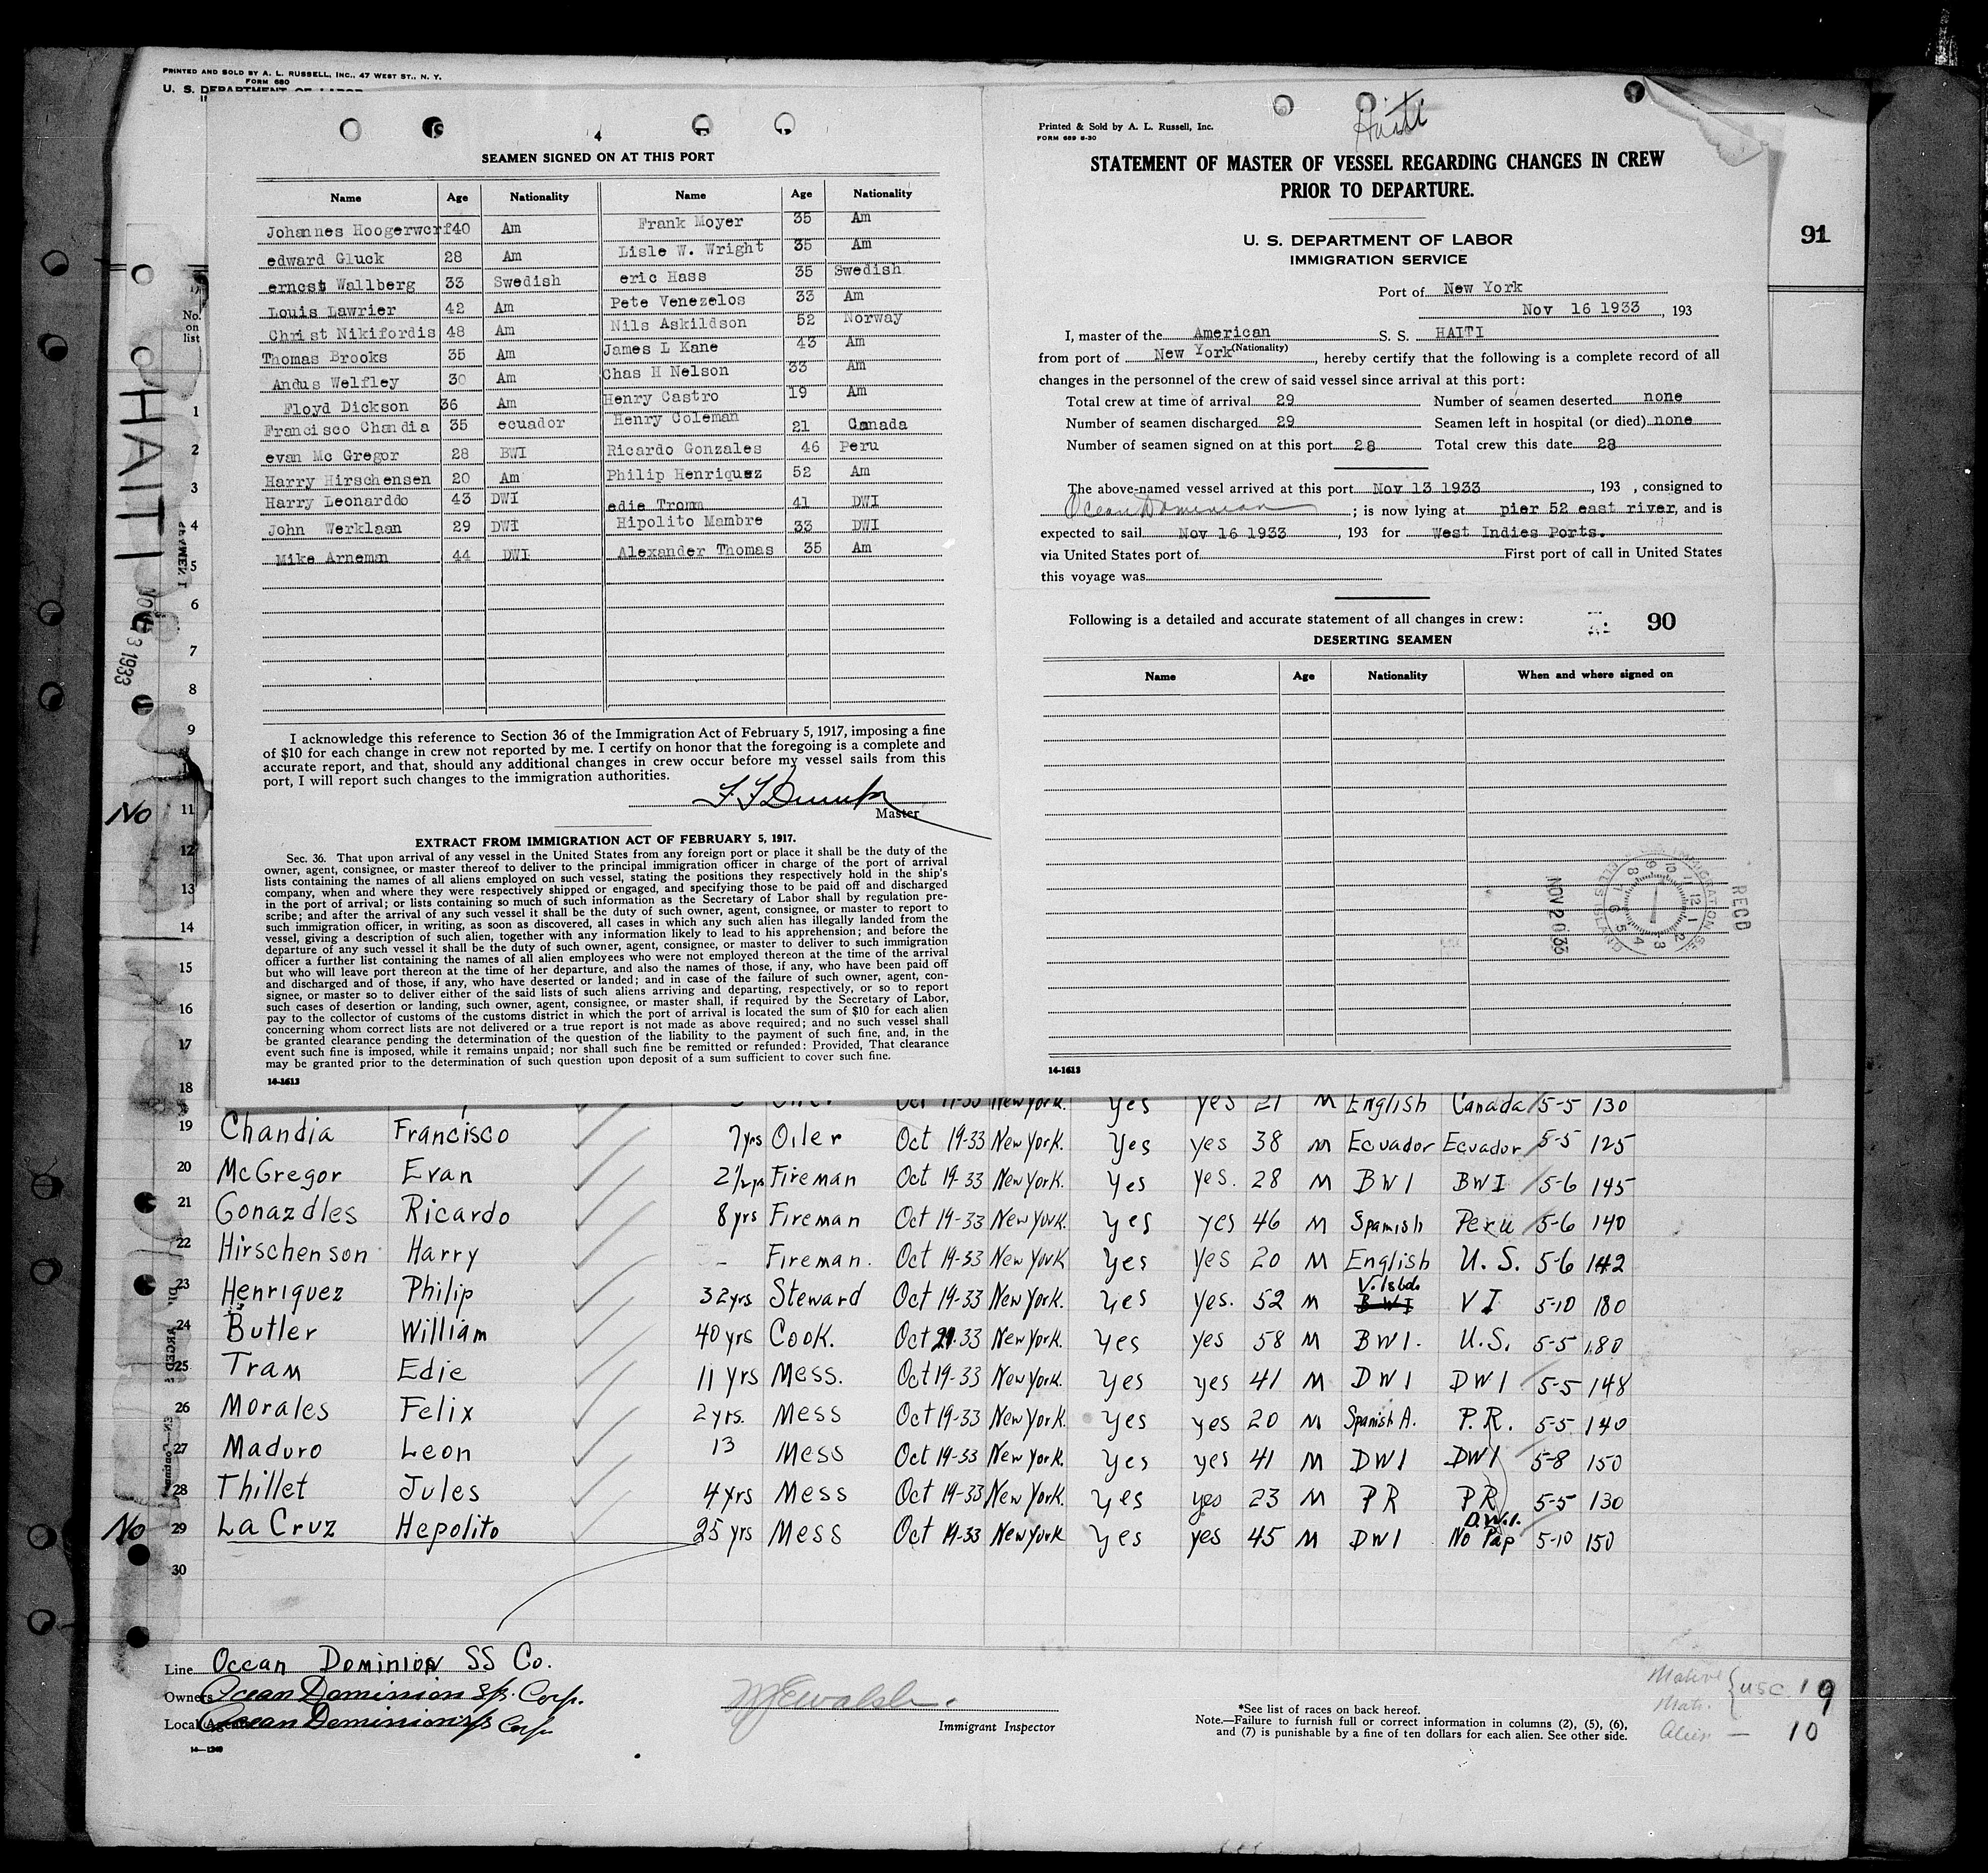 PRINTED AND SOLD BY A. L. RUSSELL, INC., 47 WEST ST., N. Y.
FORM 680
U. S. DEPARTMENT OF LABOR
4
SEAMEN SIGNED ON AT THIS PORT
Name Age Nationality Name Age Nationality
Johannes Hoogerworf 40 Am Frank Moyer 35 Am
edward Gluck 28 Am Lisle W. Wright 35 Am
ernest Wallberg 33 Swedish eric Hass 35 Swedish
Louis Lawrier 42 Am Pete Venezelos 33 Am
Christ Nikifordis 48 Am Nils Askildson 52 Norway
Thomas Brooks 35 Am James L Kane 43 Am
Andus Welfley 30 Am Chas H Nelson 33 Am
Floyd Dickson 36 Am Henry Castro 19 Am
Francisco Chandia 35 ecuador Henry Coleman 21 Canada
evan Mc Gregor 28 BWI Ricardo Gonzales 46 Peru
Harry Hirschensen 20 Am Philip Henriquez 52 Am
Harry Leonarddo 43 DWI edie Tromm 41 DWI
John Werklaan 29 DWI Hipolito Mambre 33 DWI
Mike Arneman 44 DWI Alexander Thomas 35 Am
I acknowledge this reference to Section 36 of the Immigration Act of February 5, 1917, imposing a fine
of $10 for each change in crew not reported by me. I certify on honor that the foregoing is a complete and
accurate report, and that, should any additional changes in crew occur before my vessel sails from this
port, I will report such changes to the immigration authorities.
Master
EXTRACT FROM IMMIGRATION ACT OF FEBRUARY 5, 1917.
Sec. 36. That upon arrival of any vessel in the United States from any foreign port or place it shall be the duty of the
owner, agent, consignee, or master thereof to deliver to the principal immigration officer in charge of the port of arrival
lists containing the names of all aliens employed on such vessel, stating the positions they respectively hold in the ship's
company, when and where they were respectively shipped or engaged, and specifying those to be paid off and discharged
in the port of arrival; or lists containing so much of such information as the Secretary of Labor shall by regulation pre-
scribe; and after the arrival of any such vessel it shall be the duty of such owner, agent, consignee, or master to report to
such immigration officer, in writing, as soon as discovered, all cases in which any such alien has illegally landed from the
vessel, giving a description of such alien, together with any information likely to lead to his apprehension; and before the
departure of any such vessel it shall be the duty of such owner, agent, consignee, or master to deliver to such immigration
officer a further list containing the names of all alien employees who were not employed thereon at the time of the arrival
but who will leave port thereon at the time of her departure, and also the names of those, if any, who have been paid off
and discharged and of those, if any, who have deserted or landed; and in case of the failure of such owner, agent, con-
signee, or master so to deliver either of the said lists of such aliens arriving and departing, respectively, or so to report
such cases of desertion or landing, such owner, agent, consignee, or master shall, if required by the Secretary of Labor,
pay to the collector of customs of the customs district in which the port of arrival is located the sum of $10 for each alien
concerning whom correct lists are not delivered or a true report is not made as above required; and no such vessel shall
be granted clearance pending the determination of the question of the liability to the payment of such fine, and, in the
event such fine is imposed, while it remains unpaid; nor shall such fine be remitted or refunded: Provided, That clearance
may be granted prior to the determination of such question upon deposit of a sum sufficient to cover such fine.
14-1613
Haiti
Printed & Sold by A. L. Russell, Inc.
FORM 689 8-30
STATEMENT OF MASTER OF VESSEL REGARDING CHANGES IN CREW
PRIOR TO DEPARTURE.
U. S. DEPARTMENT OF LABOR
IMMIGRATION SERVICE
Port of New York
Nov 16 1933, 193
I, master of the American S. S. HAITI
(Nationality)
from port of New York, hereby certify that the following is a complete record of all
changes in the personnel of the crew of said vessel since arrival at this port:
Total crew at time of arrival 29 Number of seamen deserted none
Number of seamen discharged 29 Seamen left in hospital (or died) none
Number of seamen signed on at this port 28 Total crew this date 28
The above-named vessel arrived at this port Nov 13 1933, 193 , consigned to
Ocean Dominion; is now lying at pier 52 east river, and is
expected to sail Nov 16 1933, 193 for West Indies Ports.
via United States port of First port of call in United States
this voyage was
Following is a detailed and accurate statement of all changes in crew: 90
DESERTING SEAMEN
Name Age Nationality When and where signed on
RECD
NOV 20 33
14-1613
91
HAITI
NOV 13 1933
No. on list
1
2
3
4
5
6
7
8
9
No 11
12
13
14
15
16
17
18 Oiler Oct 19-33 New York. yes yes 21 M English Canada 5-5 130
19 Chandia Francisco 7yrs Oiler Oct 19-33 New York. yes yes 38 M Ecuador Ecuador 5-5 125
20 McGregor Evan 2½yrs Fireman Oct 19-33 New York. yes yes. 28 M BWI BWI 5-6 145
21 Gonazdles Ricardo 8yrs Fireman Oct 19-33 New York. yes yes 46 M Spanish Peru 5-6 140
22 Hirschenson Harry - Fireman. Oct 19-33 New York yes yes 20 M English U.S. 5-6 142
23 Henriquez Philip 32yrs Steward Oct 19-33 New York. yes yes. 52 M BWI VI 5-10 180
24 Butler William 40yrs Cook. Oct 21-33 New York. yes yes 58 M BWI. U.S. 5-5 180
25 Tram Edie 11 yrs Mess. Oct 19-33 New York. yes yes 41 M DWI DWI 5-5 148
26 Morales Felix 2yrs. Mess Oct 19-33 New York. yes yes 20 M Spanish A. P.R. 5-5 140
27 Maduro Leon 13 Mess Oct 19-33 New York. yes yes 41 M DWI DWI 5-8 150
28 Thillet Jules 4yrs Mess Oct 19-33 New York. yes yes 23 M PR PR 5-5 130
D.W.I.
No 29 La Cruz Hepolito 25 yrs Mess Oct 19-33 New York yes yes 45 M DWI No Pap 5-10 150
30
Line Ocean Dominion SS Co.
Owners Ocean Dominion S/S. Corp.
Local Agents Ocean Dominion S/S Corp.
14-1240
Immigrant Inspector
*See list of races on back hereof.
Note.—Failure to furnish full or correct information in columns (2), (5), (6),
and (7) is punishable by a fine of ten dollars for each alien. See other side.
USC 19
Alien — 10